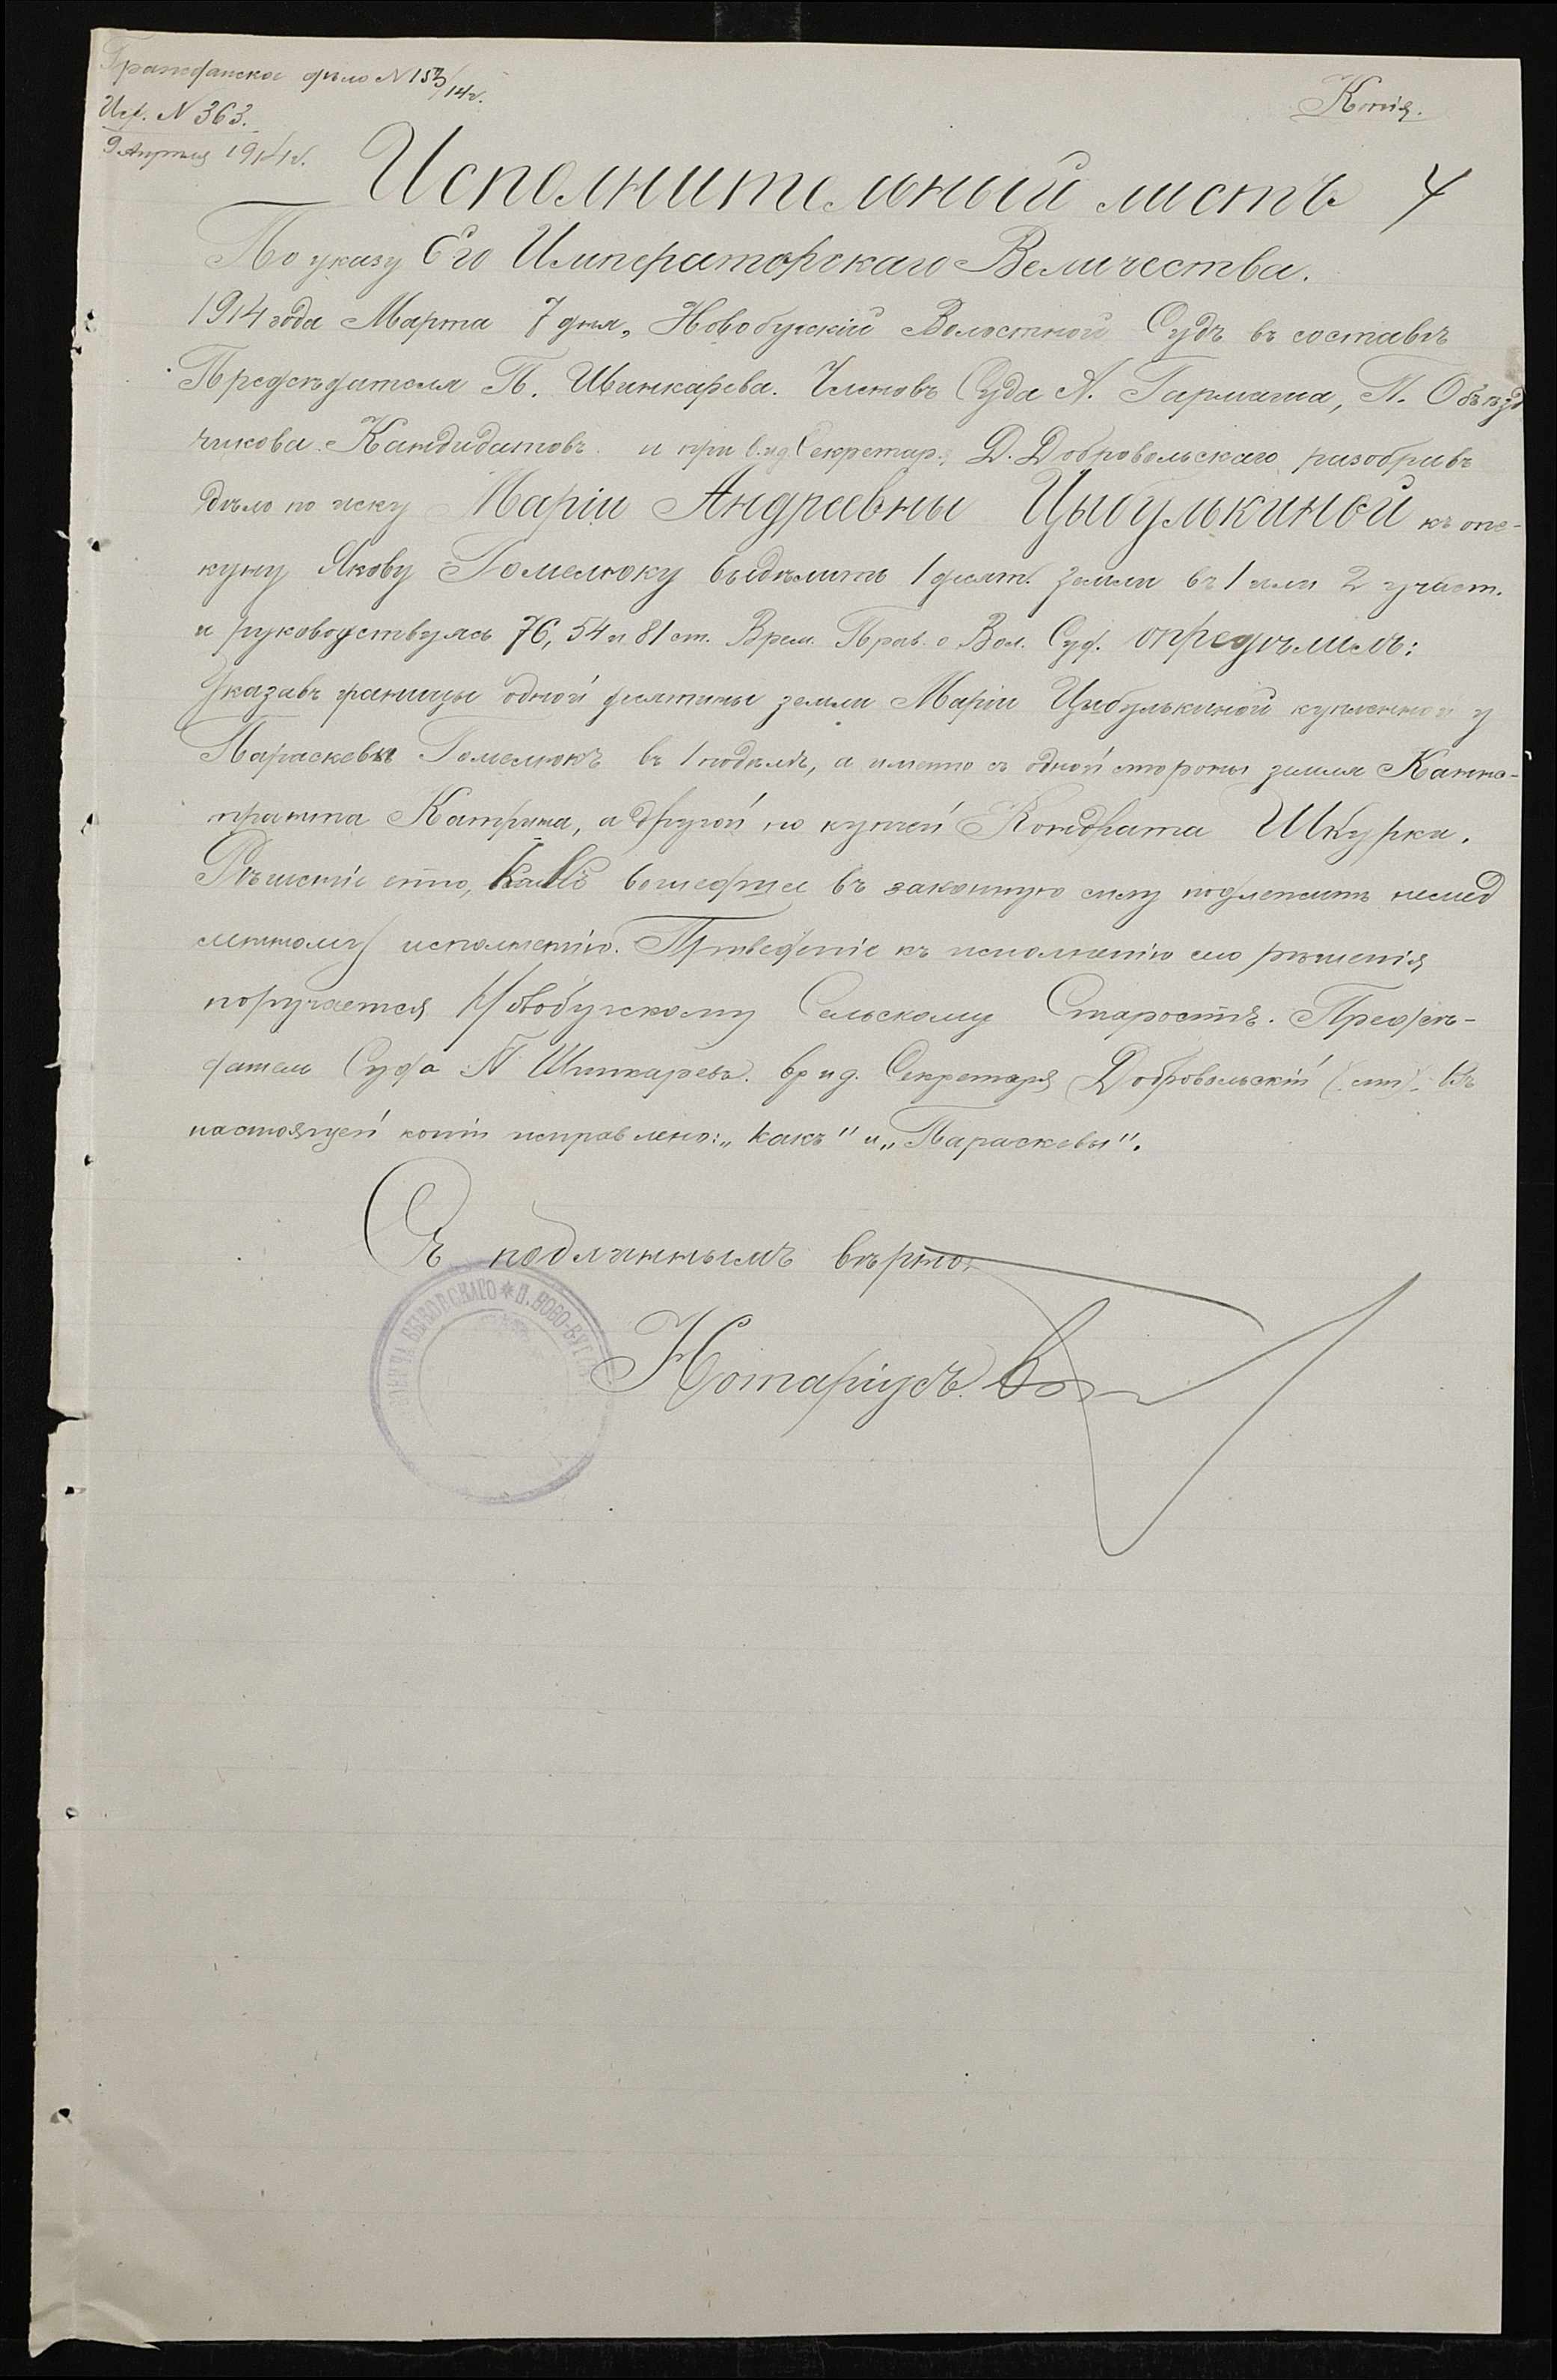 Гражданское дѣло N 153/14г.
Исх. N 363.
9 Апрѣля 1914 г.
Копія.
Исполнительный листъ 4
По указу Его Императорскаго Величества.
1914 года Марта 7 дня, Новобугскій Волостной Судъ въ составѣ
Предсѣдателя П. Шинкарева. Членовъ Суда А. Гармаша, П. Объѣзд
чикова Кандидатовъ и при вр.и.д. Секретар. Д. Добровольскаго разобравъ
дѣло по иску Маріи Андреевны Цыбулькиной къ опе-
куну Якову Гомелюку выдѣлить 1 десят. земли въ 1 или 2 участ.
и руководствуясь 76, 54 и 81 ст. Врем. Прав. о Вол. Суд. опредѣлилъ:
Указавъ границы одной десятины земли Маріи Цыбулькиной купленной у
Параскевы Гомелюкъ въ 1 подѣлѣ, а именно съ одной стороны земля
Катрича, а другой по купчей Кондрата Шкурка.
Рѣшеніе это, какъ вошедшее въ законную силу подлежитъ немед
ленному исполненію. Приведеніе къ исполненію сего рѣшенія
поручается Новобугскому Сельскому Старостѣ. Предсѣ-
датель Суда П Шинкаревъ. вр и д. Секретаря Добровольскій Въ
настоящей копіи исправлено: „какъ" и „Параскевы".
Съ подлиннымъ вѣрно,
Нотаріусъ